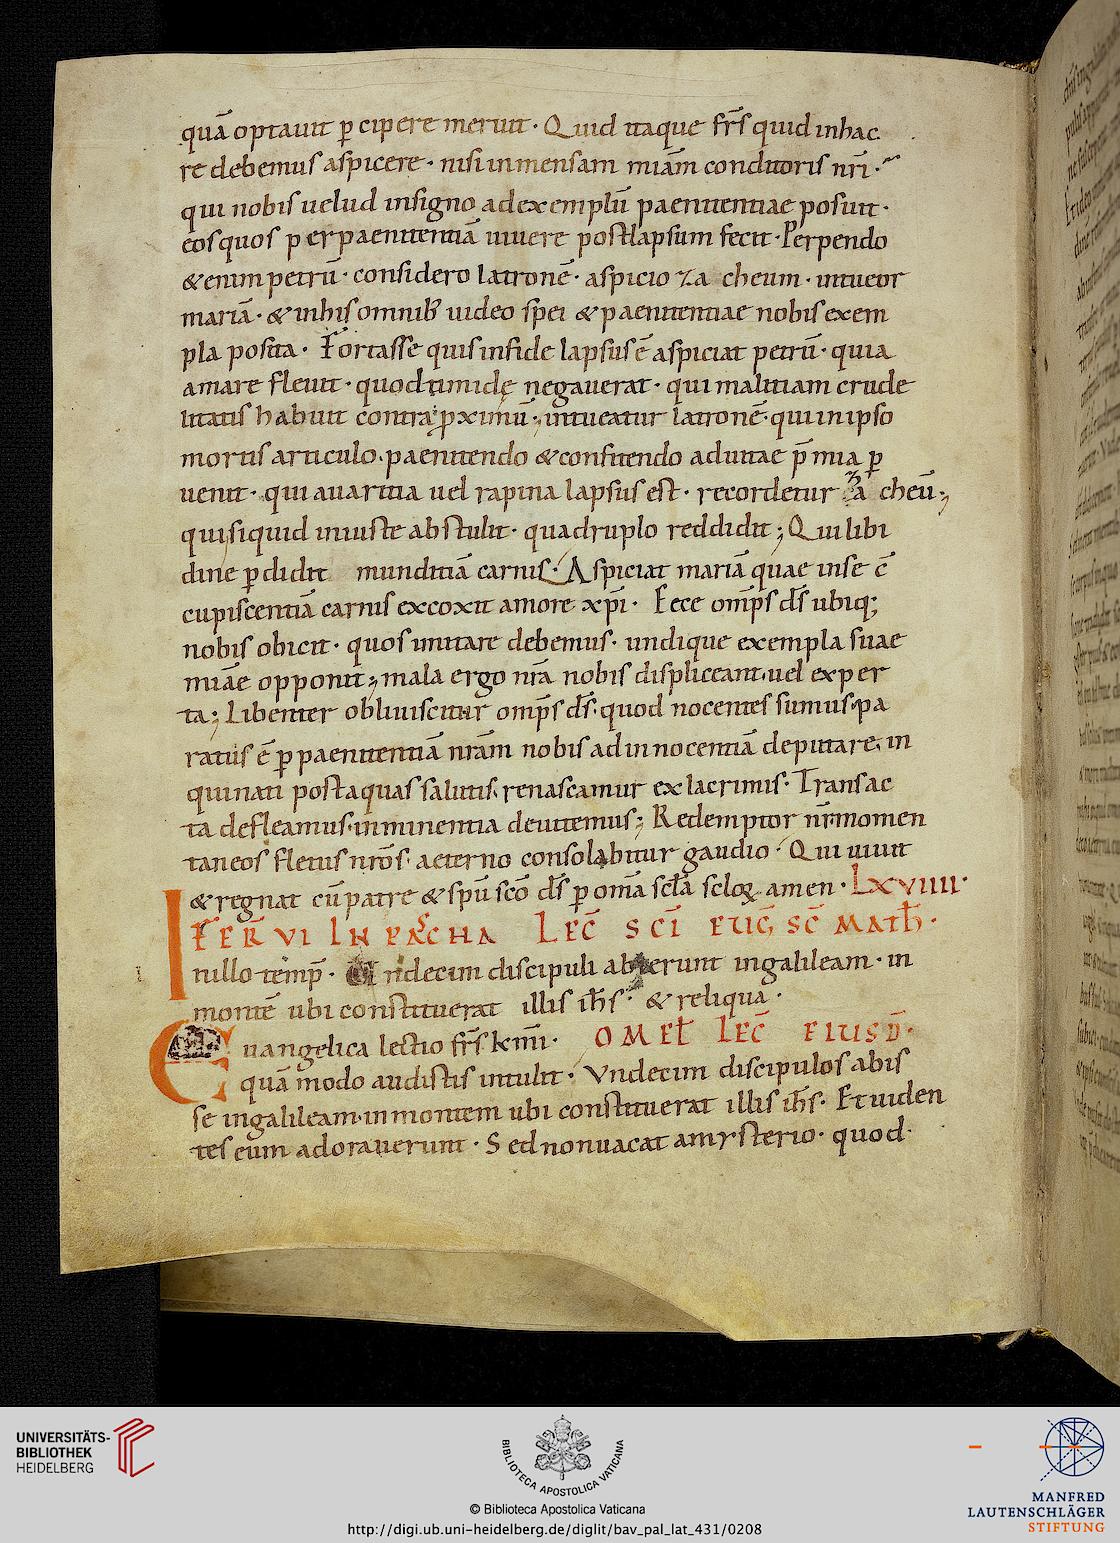 quā optauit ꝑ cipere meruit · Quid itaque frs̄ quid in hac
re debemus aspicere · nisi inmensam miām conditoris nr̄i ·
qui nobis uelud insigno adexemplū paenitentiae posuit ·
eos quos per paenitentiā uiuere post lapsum fecit · Perpendo
& enim petrū · considero latronē · aspicio za cheum · intueor
mariā · & inhis omnib' uideo spei & paenitentiae nobis exem
pla posita · Fortasse quis infide lapsus ē aspiciat petrū · quia
amare fleuit · quod timide negauerat · qui malitiam crude
litatis habuit contra ꝓximū ; intueatur latronē · qui inipso
mortis articulo · paenitendo & confitendo aduitae p̄mia ꝑ
uenit · qui auaritia uel rapina lapsus est · recordetur za cheū ;
qui siquid iniuste abstulit · quadruplo reddidit ; Qui libi
dine ꝑdidit munditiā carnis · Aspiciat mariā quae inse ē
cupiscentiā carnis excoxit amore xp̄i · Ecce omp̄s ds̄ ubiq;
nobis obicit · quos imitare debemus · undique exempla suae
miāe opponit ; mala ergo nr̄a nobis displiceant · uel exper
ta ; Libenter obliuiscitur omp̄s ds̄ · quod nocentes fumus · pa
ratus ē ꝑ paenitentiā nr̄am nobis ad innocentiā deputare · in
quinati post aquas salutis · renascamur ex lacrimis · Transac
ta defleamus · inminentia deuitemus ; Redemptor nr̄ momen
taneos fletus nr̄os · aeterno consolabitur gaudio · Qui uiuit
& regnat cū patre & spū sc̄o ds̄ ꝑ omā scl̄a scloꝝ amen · LXVIIII ·
FER̄ VI IN PASCHA LEC̄ SC̄I EUḠ SC̄ MATH̄ ·
I nullo temp̄ · Undecim discipuli abierunt ingalileam · in
montē ubi constituerat illis ih̄s · & reliqua ·
Euangelica lectio frs̄ km̄i · OMEL̄ LEC̄ EIUSD̄ ·
quā modo audistis intulit · Vndecim discipulos abis
se ingalileam · inmontem ubi constituerat illis ih̄s · Et uiden
tes eum adorauerunt · Sed non uacat amysterio · quod ·
UNIVERSITÄTS-
BIBLIOTHEK
HEIDELBERG
BIBLIOTECA APOSTOLICA VATICANA
© Biblioteca Apostolica Vaticana
http://digi.ub.uni-heidelberg.de/diglit/bav_pal_lat_431/0208
MANFRED
LAUTENSCHLÄGER
STIFTUNG